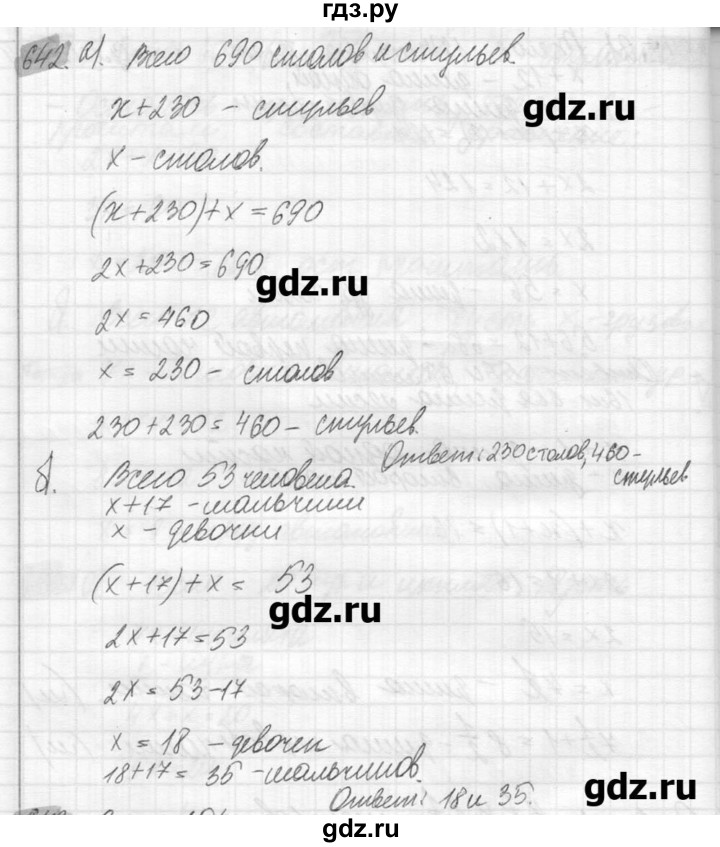 гдз.ру
642. а). Всего 690 столов и стульев.
x+230 – стульев
gdz.ru
x – столов.
(x+230)+x=690
2x+230=690
gdz.ru
2x=460
x=230 – столов
230+230=460 – стульев.
Ответ: 230 столов, 460 – стульев
б). Всего 53 человека.
x+17 – мальчики
x – девочки
(x+17)+x= 53
gdz.ru
2x+17=53
2x=53-17
x=18 – девочек
18+17= 35 – мальчиков.
Ответ: 18 и 35.
gdz.ru
gdz.ru